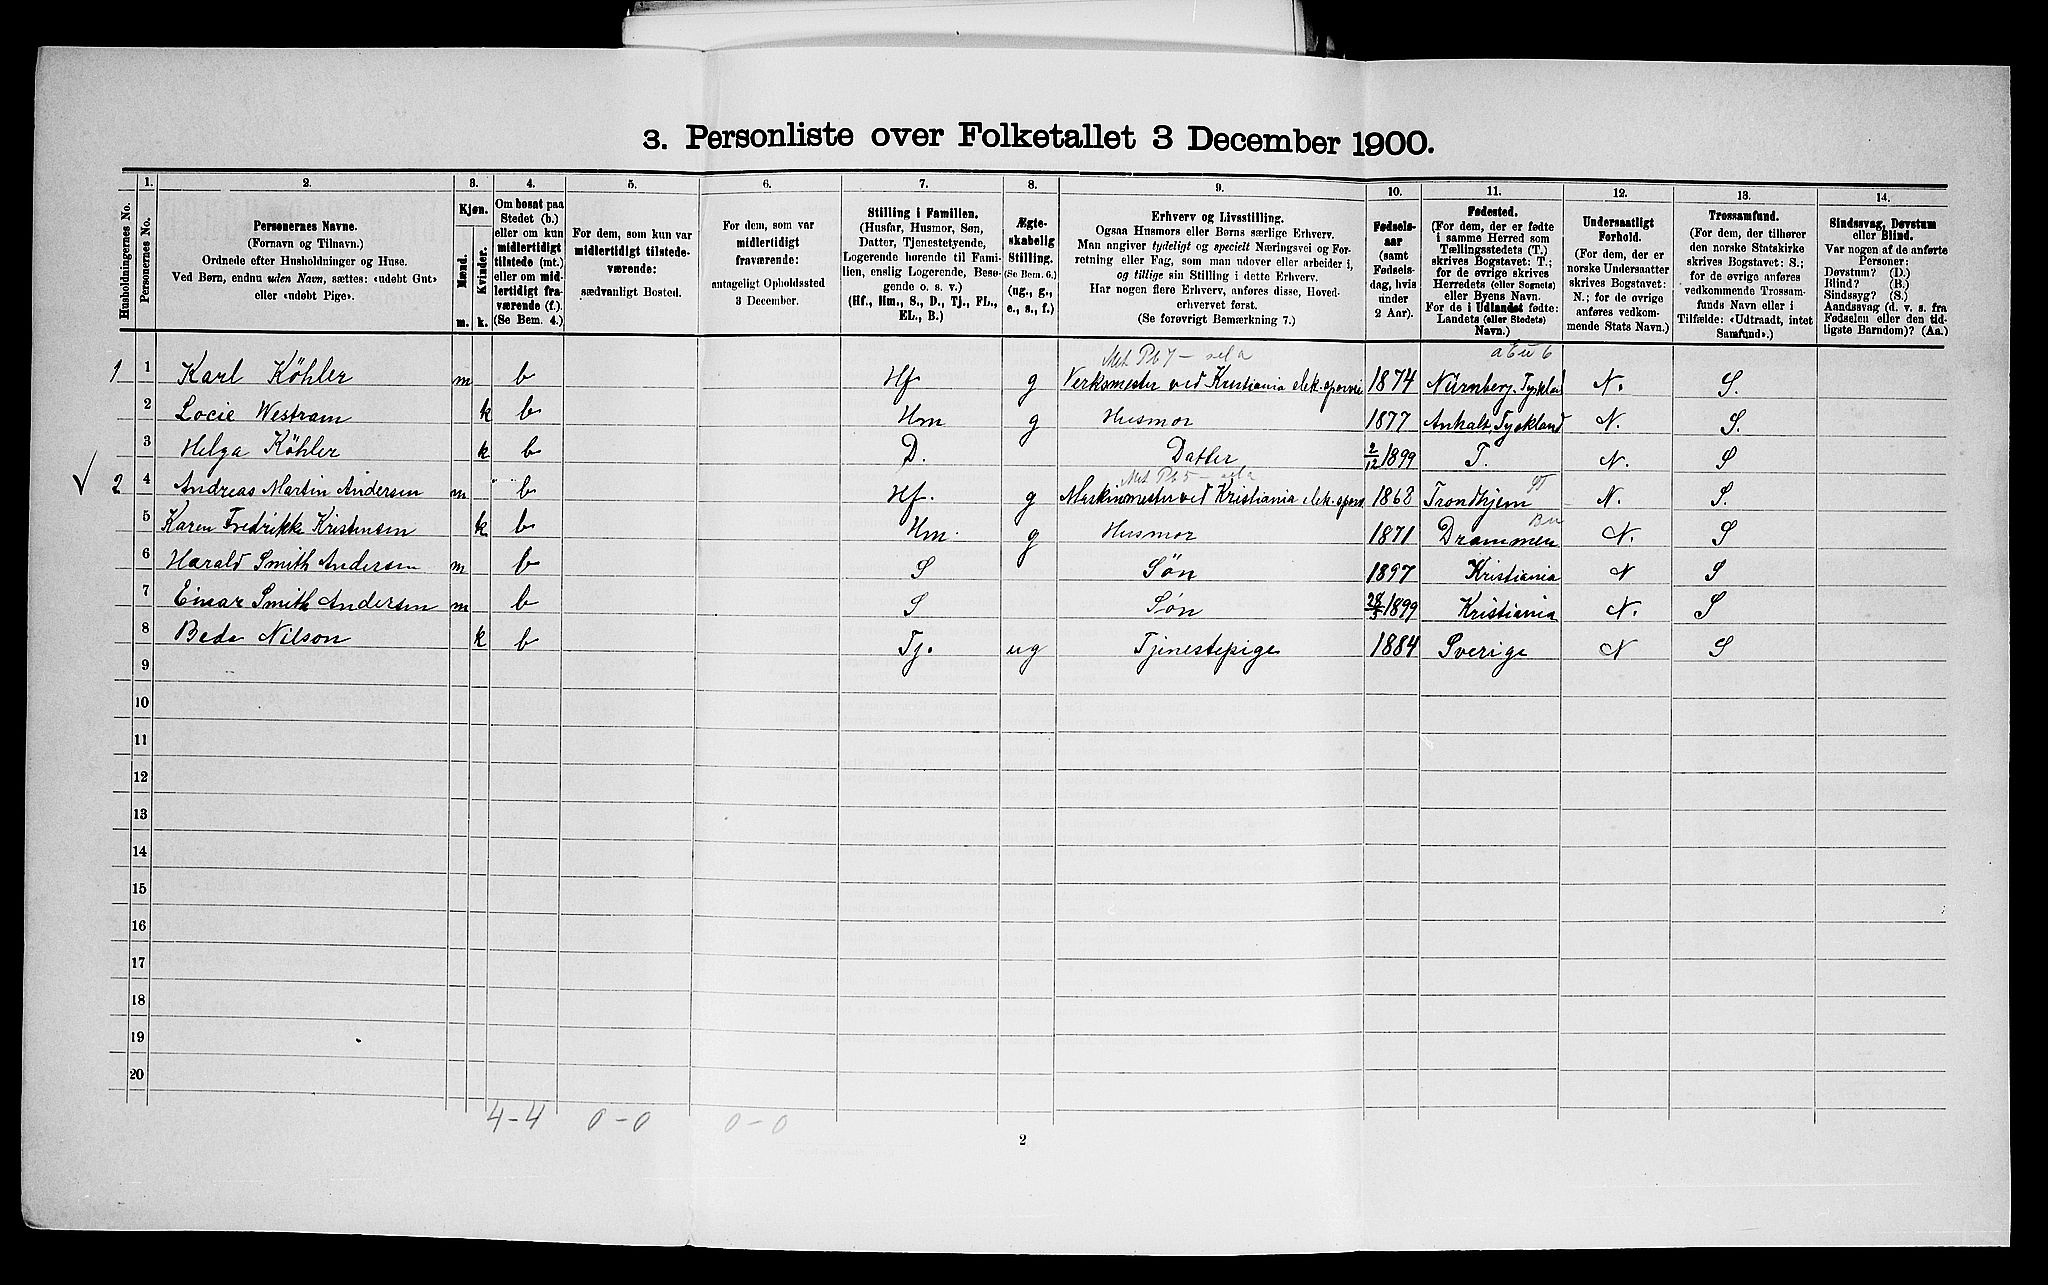 3. Personliste over Folketallet 3 December 1900.
Husholdningernes No.
1.
Personernes No.
2.
Personernes Navne.
(Fornavn og Tilnavn.)
Ordnede efter Husholdninger og Huse.
Ved Børn, endnu uden Navn, sættes: «udøbt Gut»
eller «udøbt Pige».
3.
Kjøn.
Mænd.
Kvinder.
m.
k.
4.
Om bosat paa
Stedet (b.)
eller om kun
midlertidigt
tilstede (mt.)
eller om mid-
lertidigt fra-
værende (f.)
(Se Bem. 4.)
5.
For dem, som kun var
midlertidigt tilstede-
værende:
sædvanligt Bosted.
6.
For dem, som var
midlertidigt
fraværende:
antageligt Opholdssted
3 December.
7.
Stilling i Familien.
(Husfar, Husmor, Søn,
Datter, Tjenestetyende,
Logerende hørende til Fami-
lien, enslig Logerende, Besø-
gende o. s. v.)
(Hf., Hm., S., D., Tj., FL.,
EL., B.)
8.
Ægte-
skabelig
Stilling.
(Se Bem. 6.)
(ug., g.,
e., s., f.)
9.
Erhverv og Livsstilling.
Ogsaa Husmors eller Børns særlige Erhverv.
Man angiver tydeligt og specielt Næringsvei og For-
retning eller Fag, som man udover eller arbeider i,
og tillige sin Stilling i dette Erhverv.
Har nogen flere Erhverv, anføres disse, Hoved-
erhvervet først.
(Se forøvrigt Bemærkning 7.)
10.
Fødsels-
aar
(samt
Fødsels-
dag, hvis
under
2 Aar).
11.
Fødested.
(For dem, der er fødte
i samme Herred som
Tællingsstedets (T.)
skrives Bogstavet: T.;
for de øvrige skrives
Herredets (eller Sognets)
eller Byens Navn.
For de i Udlandet fødte:
Landets (eller Stedets)
Navn.)
12.
Undersaatligt
Forhold.
(For dem, der er
norske Undersaatter
skrives Bogstavet:
N.; for de øvrige
anføres vedkom-
mende Stats Navn.)
13.
Trossamfund.
(For dem, der tilhører
den norske Statskirke
skrives Bogstavet: S.;
for de øvrige anføres
vedkommende Trossam-
funds Navn eller i
Tilfælde: «Udtraadt, intet
Samfund».)
14.
Sindssvag, Døvstum
eller Blind.
Var nogen af de anførte
Personer:
Døvstum? (D.)
Blind? (B.)
Sindssyg? (S.)
Aandssvag (d. v. s. fra
Fødselen eller den tid-
ligste Barndom)? (Aa.)
1 1 Karl Köhler m b Hf g Verksmester ved Kristiania elek. sporvei 1874 Nürnberg. Tyskland N. S.
2 Locie Westram k b Hm g Husmor 1877 Anhalt, Tyskland N. S.
3 Helga Köhler k b D. Datter 2/12 1899 T. N. S
2 4 Andreas Martin Andersen m b Hf. g Maskinmester ved Kristiania elek. sporv 1868 Trondhjem N. S.
5 Karen Fredrikke Kristensen k b Hm. g Husmor 1871 Drammen N. S
6 Harald Smith Andersen m b S Søn 1897 Kristiania N S
7 Einar Smith Andersen m b S Søn 28/3 1899 Kristiania N. S
8 Beda Nilson k b Tj. ug Tjenestepige 1884 Sverige N S
9
10
11
12
13
14
15
16
17
18
19
20
4-4 0-0 0-0
2